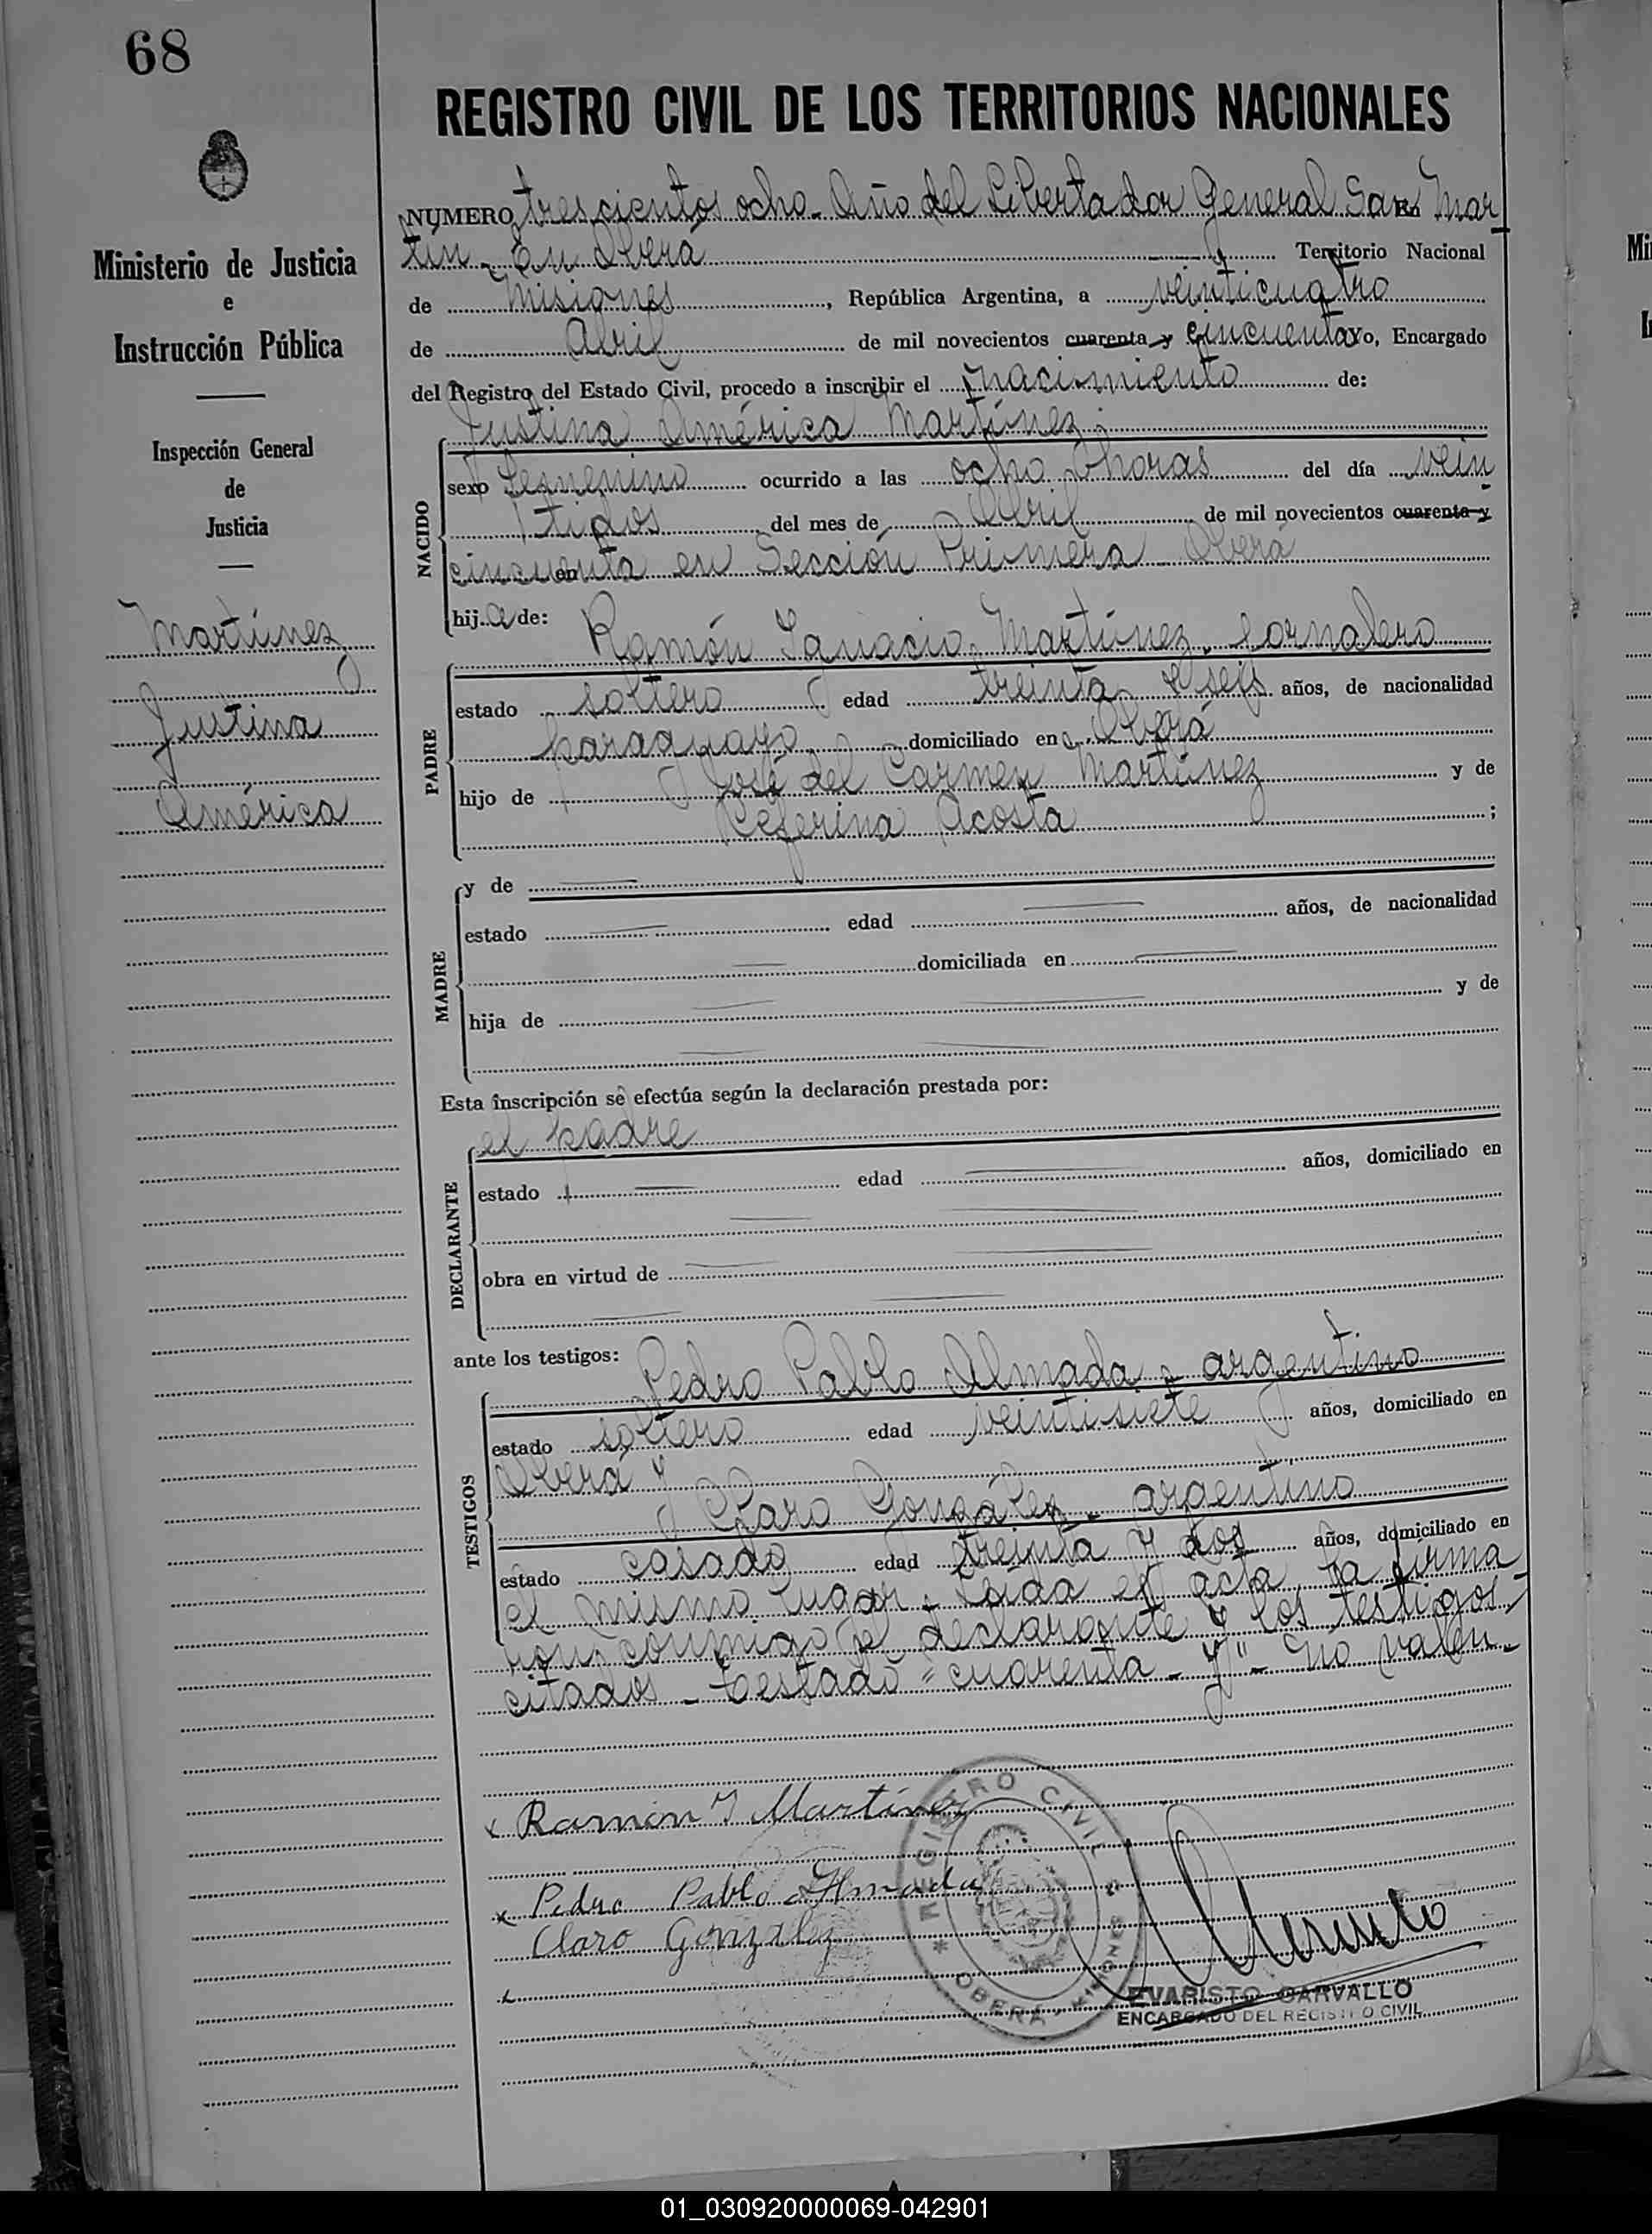 68
REGISTRO CIVIL DE LOS TERRITORIOS NACIONALES
Ministerio de Justicia
e
Instrucción Pública
Inspección General
de
Justicia
Martínez
Justina
América
NUMERO trescientos ocho. Año del Libertador General San Mar
tín. En Oberá Territorio Nacional
de Misiones, República Argentina, a veinticuatro
de Abril de mil novecientos cuarenta y cincuenta yo, Encargado
del Registro del Estado Civil, procedo a inscribir el nacimiento de:
Justina América Martínez
NACIDO
sexo femenino ocurrido a las ocho horas del día vein
tidos del mes de Abril de mil novecientos cuarenta y
cincuenta en Sección Primera Oberá
hija de: Ramón Ignacio Martínez, Jornalero
PADRE
estado soltero edad treinta y seis años, de nacionalidad
paraguayo domiciliado en Oberá
hijo de José del Carmen Martínez y de
Ceferina Acosta ;
MADRE
y de
estado edad años, de nacionalidad
domiciliada en
hija de y de
Esta inscripción se efectúa según la declaración prestada por:
el padre
DECLARANTE
estado edad años, domiciliado en
obra en virtud de
ante los testigos: Pedro Pablo Almada, argentino
TESTIGOS
estado soltero edad veintisiete años, domiciliado en
Oberá y
Claro González, argentino
estado casado edad treinta y dos años, domiciliado en
el mismo lugar. Leída el acta, la firma
ron conmigo el declarante y los testigos
citados - Testado "cuarenta - y" - no valen.
Ramón I Martínez
Pedro Pablo Almada
Claro González
REGISTRO CIVIL
OBERÁ - MISIONES
EVARISTO CARVALLO
ENCARGADO DEL REGISTRO CIVIL
01_030920000069-042901